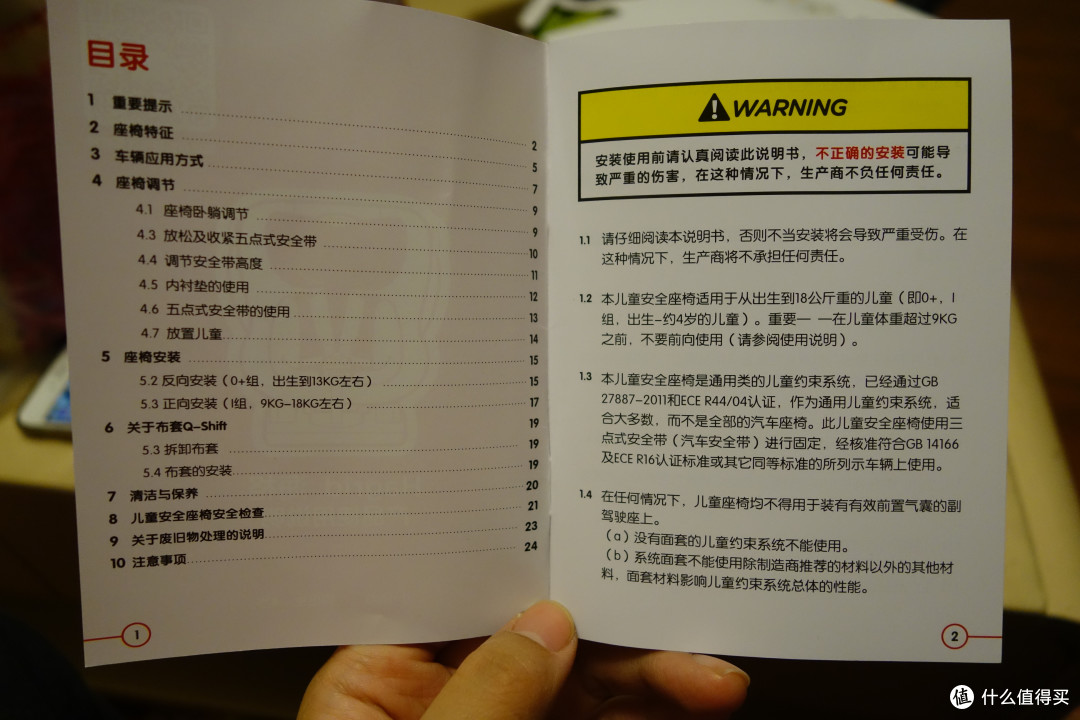 目录
1 重要提示 2
2 座椅特征 5
3 车辆应用方式 7
4 座椅调节 9
4.1 座椅卧躺调节 9
4.3 放松及收紧五点式安全带 10
4.4 调节安全带高度 11
4.5 内衬垫的使用 12
4.6 五点式安全带的使用 13
4.7 放置儿童 14
5 座椅安装 15
5.2 反向安装（0+组，出生到13KG左右） 15
5.3 正向安装（I组，9KG-18KG左右） 17
6 关于布套Q-Shift 19
5.3 拆卸布套 19
5.4 布套的安装 19
7 清洁与保养 20
8 儿童安全座椅安全检查 21
9 关于废旧物处理的说明 23
10 注意事项 24
1
WARNING
安装使用前请认真阅读此说明书，不正确的安装可能导
致严重的伤害，在这种情况下，生产商不负任何责任。
1.1 请仔细阅读本说明书，否则不当安装将会导致严重受伤。在
这种情况下，生产商将不承担任何责任。
1.2 本儿童安全座椅适用于从出生到18公斤重的儿童（即0+，I
组，出生-约4岁的儿童）。重要— —在儿童体重超过9KG
之前，不要前向使用（请参阅使用说明）。
1.3 本儿童安全座椅是通用类的儿童约束系统，已经通过GB
27887-2011和ECE R44/04认证，作为通用儿童约束系统，适
合大多数，而不是全部的汽车座椅。此儿童安全座椅使用三
点式安全带（汽车安全带）进行固定，经核准符合GB 14166
及ECE R16认证标准或其它同等标准的所列示车辆上使用。
1.4 在任何情况下，儿童座椅均不得用于装有有效前置气囊的副
驾驶座上。
（a）没有面套的儿童约束系统不能使用。
（b）系统面套不能使用除制造商推荐的材料以外的其他材
料，面套材料影响儿童约束系统总体的性能。
2
值 什么值得买